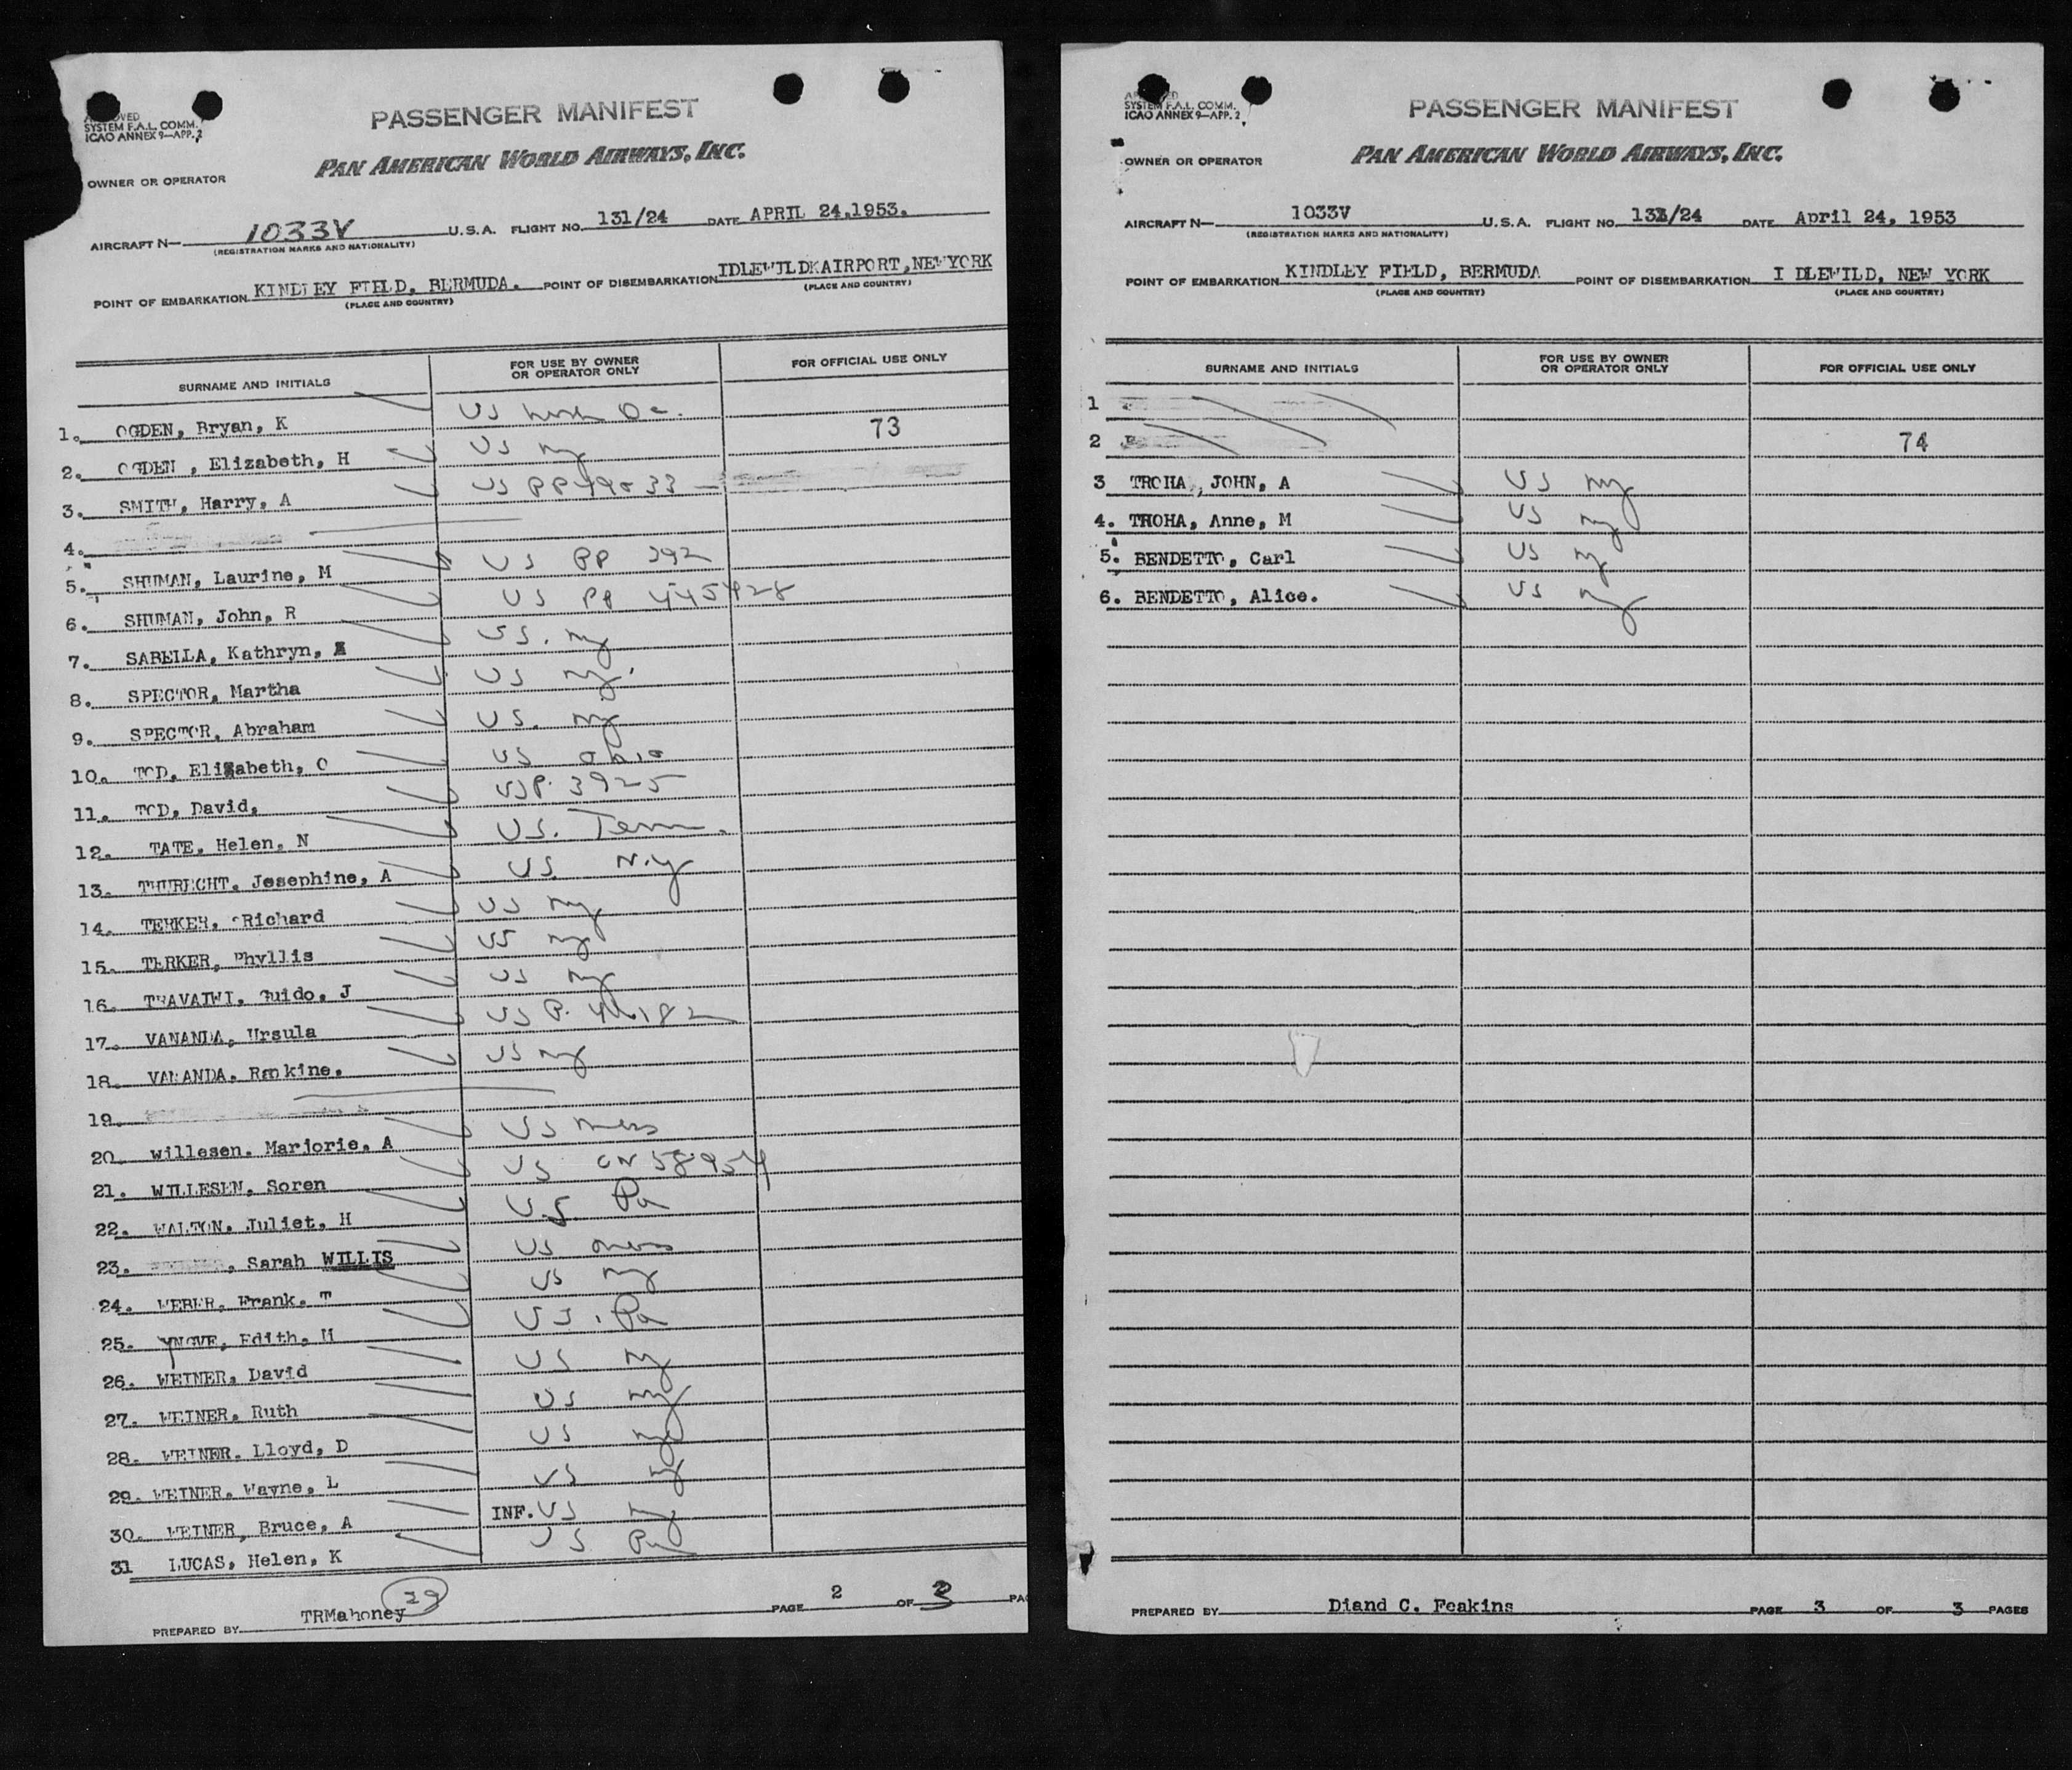 PASSENGER MANIFEST
SYSTEM F.A.L. COMM.
ICAO ANNEX 9—APP. 2
PAN AMERICAN WORLD AIRWAYS, INC.
OWNER OR OPERATOR
AIRCRAFT N— 1033V U.S.A. FLIGHT NO. 131/24 DATE APRIL 24,1953.
(REGISTRATION MARKS AND NATIONALITY)
POINT OF EMBARKATION KINDLEY FIELD, BERMUDA. POINT OF DISEMBARKATION IDLEWILDKAIRPORT,NEWYORK
(PLACE AND COUNTRY) (PLACE AND COUNTRY)
SURNAME AND INITIALS FOR USE BY OWNER OR OPERATOR ONLY FOR OFFICIAL USE ONLY
1. OGDEN, Bryan, K US 73
2. OGDEN , Elizabeth, H US ny
3. SMITH, Harry, A US PP
4.
5. SHUMAN, Laurine, M US PP 392
6. SHUMAN, John, R US PP 445928
7. SABELLA, Kathryn, US. ny
8. SPECTOR, Martha US ny.
9. SPECTOR, Abraham US. ny
10. TOD, Elizabeth, O US Ohio
11. TOD, David, USP. 3925
12. TATE, Helen, N US. Tenn.
13. THURECHT. Josephine, A US N.y
14. TERKER, Richard US ny
15. TERKER, Phyllis US ny
16. Guido, J US ny
17. VANANDA, Ursula US P.
18. VANANDA. Rankine. US ny
19.
20. Willesen. Marjorie, A US mass
21. WILLESEN, Soren US CN 58954
22. WALTON. Juliet, H U.S Pa
23. , Sarah WILLIS US mass
24. WEBER, Frank. T US ny
25. YNGVE, Edith, M US. Pa
26. WEINER, David US ny
27. WEINER. Ruth US ny
28. WEINER. Lloyd, D US ny
29. WEINER. Wayne, L US ny
30. WEINER, Bruce, A INF. US ny
31 LUCAS, Helen, K US Pa
29
PREPARED BY TRMahoney PAGE 2 OF 3 PA
PASSENGER MANIFEST
SYSTEM F.A.L. COMM.
ICAO ANNEX 9—APP. 2
PAN AMERICAN WORLD AIRWAYS, INC.
OWNER OR OPERATOR
AIRCRAFT N— 1033V U.S.A. FLIGHT NO. 131/24 DATE April 24, 1953
(REGISTRATION MARKS AND NATIONALITY)
POINT OF EMBARKATION KINDLEY FIELD, BERMUDA POINT OF DISEMBARKATION I DLEWILD, NEW YORK
(PLACE AND COUNTRY) (PLACE AND COUNTRY)
SURNAME AND INITIALS FOR USE BY OWNER OR OPERATOR ONLY FOR OFFICIAL USE ONLY
1
2 74
3 TROHA, JOHN, A US ny
4. TROHA, Anne, M US ny
5. BENDETTO, Carl US ny
6. BENDETTO, Alice. US ny
PREPARED BY Diand C. Feakins PAGE 3 OF 3 PAGES